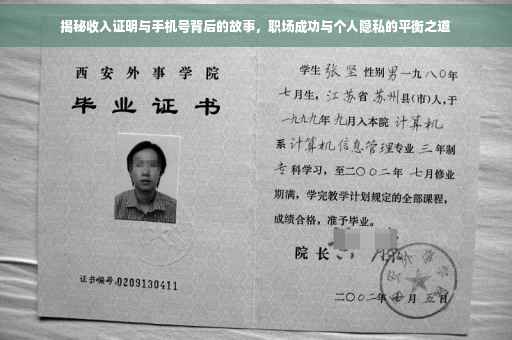 揭秘收入证明与手机号背后的故事，职场成功与个人隐私的平衡之道
西安外事学院
毕业证书
证书编号：0209130411
学生 张坚 性别 男 一九八〇年
七月生，江苏省 苏州 县(市)人，于
一九九九年九月入本院 计算机
系 计算机信息管理 专业 三 年制
专 科学习，至二〇〇二年 七月修业
期满，学完教学计划规定的全部课程，
成绩合格，准予毕业。
院长
二〇〇二年 月 五 日